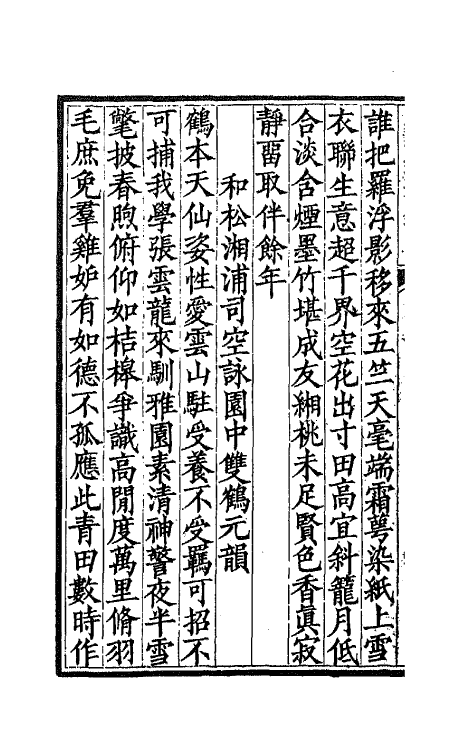 誰把羅浮影移來五竺天毫端霜萼染紙上雪
衣聯生意超千界空花出寸田高宜斜籠月低
合淡含煙墨竹堪成友緗桃未足賢色香眞寂
靜畱取伴餘年
和松湘浦司空詠園中雙鶴元韻
鶴本天仙姿性愛雲山駐受養不受羈可招不
可捕我學張雲龍來馴雅園素清神警夜半雪
氅披春煦俯仰如桔槔爭識高閒度萬里脩羽
毛庶免羣雞妒有如德不孤應此青田數時作